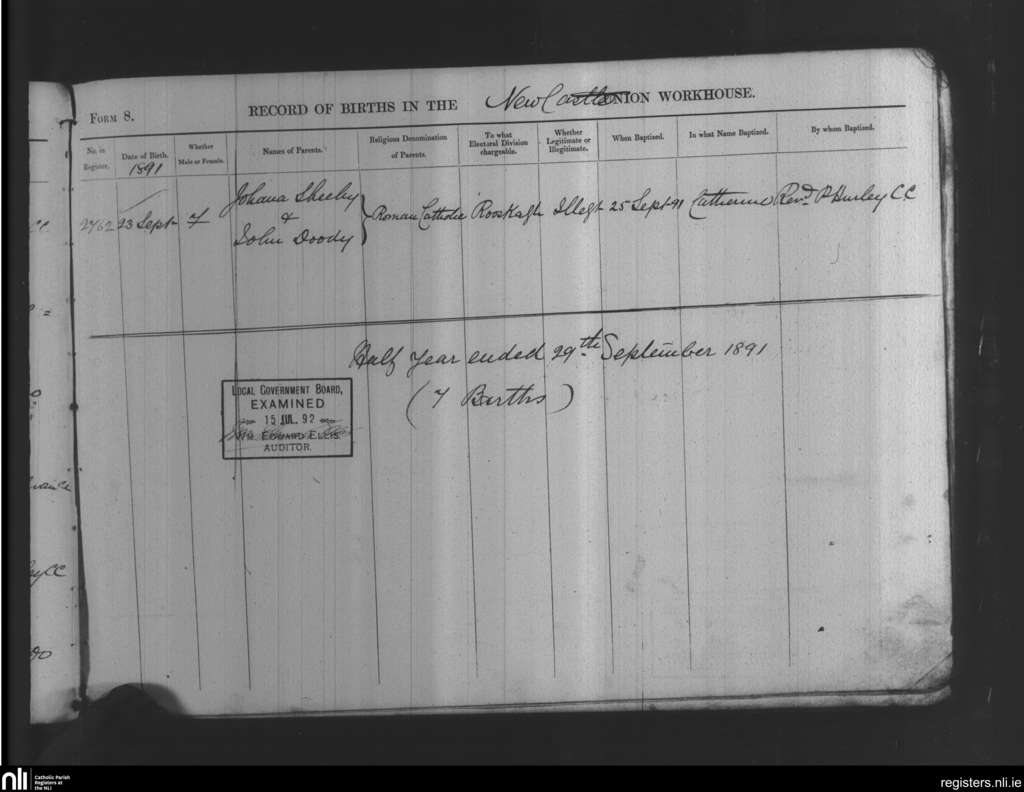 FORM 8.
RECORD OF BIRTHS IN THE New Castle UNION WORKHOUSE.
No. in Register.
Date of Birth.
1891
Whether Male or Female.
Names of Parents.
Religious Denomination of Parents.
To what Electoral Division chargeable.
Whether Legitimate or Illegitimate.
When Baptized.
In what Name Baptized.
By whom Baptized.
2762 23 Sept F Johana Sheehy & John Doody } Roman Catholic Rooskagh Illegt 25 Sept 91 Catherine Revd. P Hurley CC
Half Year ended 29th September 1891
(7 Births)
LOCAL GOVERNMENT BOARD,
EXAMINED
15 JUL. 92
WM. EDWARD ELLIS
AUDITOR.
CC
do
nli
Catholic Parish
Registers at
the NLI
registers.nli.ie